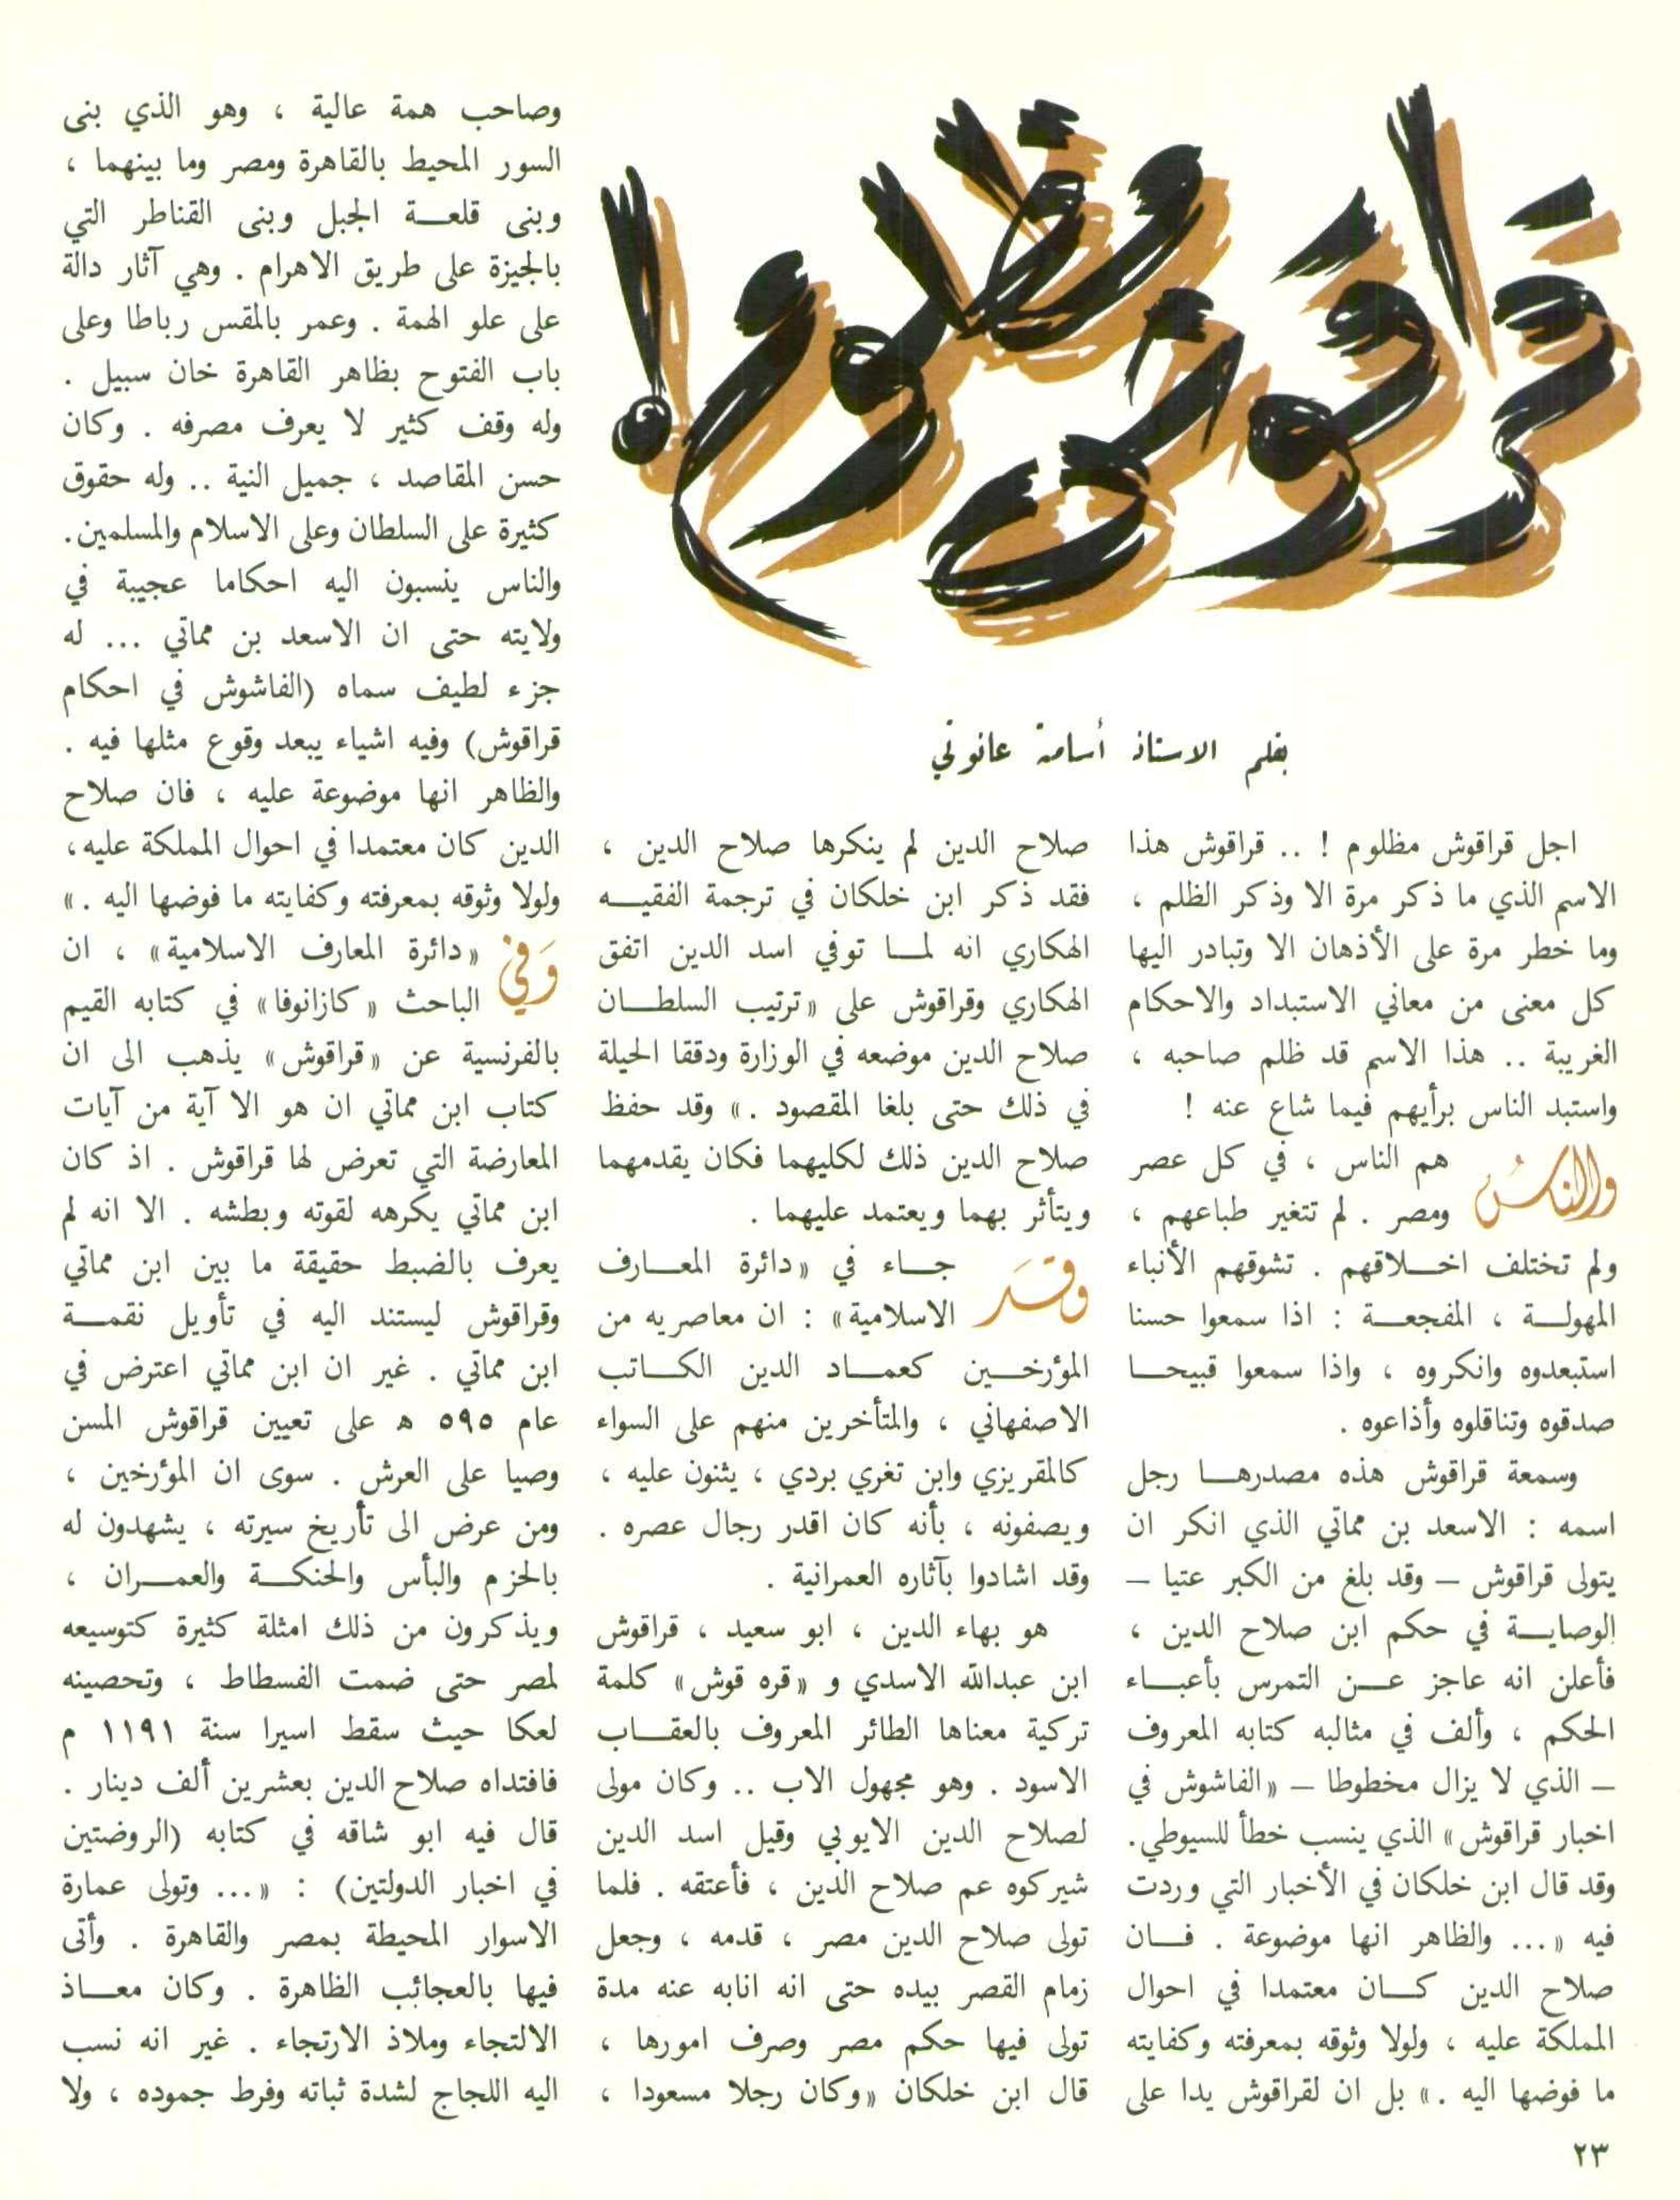 قراقوش مظلوم!
بقلم الاستاذ أسامة عانوتي
اجل قراقوش مظلوم ! .. قراقوش هذا
الاسم الذي ما ذكر مرة الا وذكر الظلم ،
وما خطر مرة على الأذهان الا وتبادر اليها
كل معنى من معاني الاستبداد والاحكام
الغريبة .. هذا الاسم قد ظلم صاحبه ،
واستبد الناس برأيهم فيما شاع عنه !
والناس هم الناس ، في كل عصر
ومصر . لم تتغير طباعهم ،
ولم تختلف اخـلاقهم . تشوقهم الأنباء
المهولـة ، المفجعـة : اذا سمعوا حسنا
استبعدوه وانكروه ، واذا سمعوا قبيحـا
صدقوه وتناقلوه وأذاعوه .
وسمعة قراقوش هذه مصدرهـا رجل
اسمه : الاسعد بن مماتي الذي انكر ان
يتولى قراقوش – وقد بلغ من الكبر عتيا –
الوصايـة في حكم ابن صلاح الدين ،
فأعلن انه عاجز عـن التمرس بأعبـاء
الحكم ، وألف في مثالبه كتابه المعروف
– الذي لا يزال مخطوطا – «الفاشوش في
اخبار قراقوش» الذي ينسب خطأ للسيوطي.
وقد قال ابن خلكان في الأخبار التي وردت
فيه «... والظاهر انها موضوعة . فـان
صلاح الدين كـان معتمدا في احوال
المملكة عليه ، ولولا وثوقه بمعرفته وكفايته
ما فوضها اليه .» بل ان لقراقوش يدا على
صلاح الدين لم ينكرها صلاح الدين ،
فقد ذكر ابن خلكان في ترجمة الفقيـه
الهكاري انه لمـا توفي اسد الدين اتفق
الهكاري وقراقوش على «ترتيب السلطـان
صلاح الدين موضعه في الوزارة ودققا الحيلة
في ذلك حتى بلغا المقصود .» وقد حفظ
صلاح الدين ذلك لكليهما فكان يقدمهما
ويتأثر بهما ويعتمد عليهما .
وقد جـاء في «دائرة المعـارف
الاسلامية» : ان معاصريه من
المؤرخـين كعمـاد الدين الكـاتب
الاصفهاني ، والمتأخرين منهم على السواء
كالمقريزي وابن تغري بردي ، يثنون عليه ،
ويصفونه ، بأنه كان اقدر رجال عصره .
وقد اشادوا بآثاره العمرانية .
هو بهاء الدين ، ابو سعيد ، قراقوش
ابن عبدالله الاسدي و «قره قوش» كلمة
تركية معناها الطائر المعروف بالعقـاب
الاسود . وهو مجهول الاب .. وكان مولى
لصلاح الدين الايوبي وقيل اسد الدين
شيركوه عم صلاح الدين ، فأعتقه . فلما
تولى صلاح الدين مصر ، قدمه ، وجعل
زمام القصر بيده حتى انه انابه عنه مدة
تولى فيها حكم مصر وصرف امورها ،
قال ابن خلكان «وكان رجلا مسعودا ،
وصاحب همة عالية ، وهو الذي بنى
السور المحيط بالقاهرة ومصر وما بينهما ،
وبنى قلعـة الجبل وبنى القناطر التي
بالجيزة على طريق الاهرام . وهي آثار دالة
على علو الهمة . وعمر بالمقس رباطا وعلى
باب الفتوح بظاهر القاهرة خان سبيل .
وله وقف كثير لا يعرف مصرفه . وكان
حسن المقاصد ، جميل النية .. وله حقوق
كثيرة على السلطان وعلى الاسلام والمسلمين.
والناس ينسبون اليه احكاما عجيبة في
ولايته حتى ان الاسعد بن مماتي ... له
جزء لطيف سماه (الفاشوش في احكام
قراقوش) وفيه اشياء يبعد وقوع مثلها فيه .
والظاهر انها موضوعة عليه ، فان صلاح
الدين كان معتمدا في احوال المملكة عليه،
ولولا وثوقه بمعرفته وكفايته ما فوضها اليه .»
وفي «دائرة المعارف الاسلامية» ، ان
الباحث «كازانوفا» في كتابه القيم
بالفرنسية عن «قراقوش» يذهب الى ان
كتاب ابن مماتي ان هو الا آية من آيات
المعارضة التي تعرض لها قراقوش . اذ كان
ابن مماتي يكرهه لقوته وبطشه . الا انه لم
يعرف بالضبط حقيقة ما بين ابن مماتي
وقراقوش ليستند اليه في تأويل نقمـة
ابن مماتي . غير ان ابن مماتي اعترض في
عام ٥٩٥ ه على تعيين قراقوش المسن
وصيا على العرش . سوى ان المؤرخين ،
ومن عرض الى تأريخ سيرته ، يشهدون له
بالحزم والبأس والحنكـة والعمـران ،
ويذكرون من ذلك امثلة كثيرة كتوسيعه
لمصر حتى ضمت الفسطاط ، وتحصينه
لعكا حيث سقط اسيرا سنة ١١٩١ م
فافتداه صلاح الدين بعشرين ألف دينار .
قال فيه ابو شاقه في كتابه (الروضتين
في اخبار الدولتين) : «... وتولى عمارة
الاسوار المحيطة بمصر والقاهرة . وأتى
فيها بالعجائب الظاهرة . وكان معـاذ
الالتجاء وملاذ الارتجاء . غير انه نسب
اليه اللجاج لشدة ثباته وفرط جموده ، ولا
٢٣